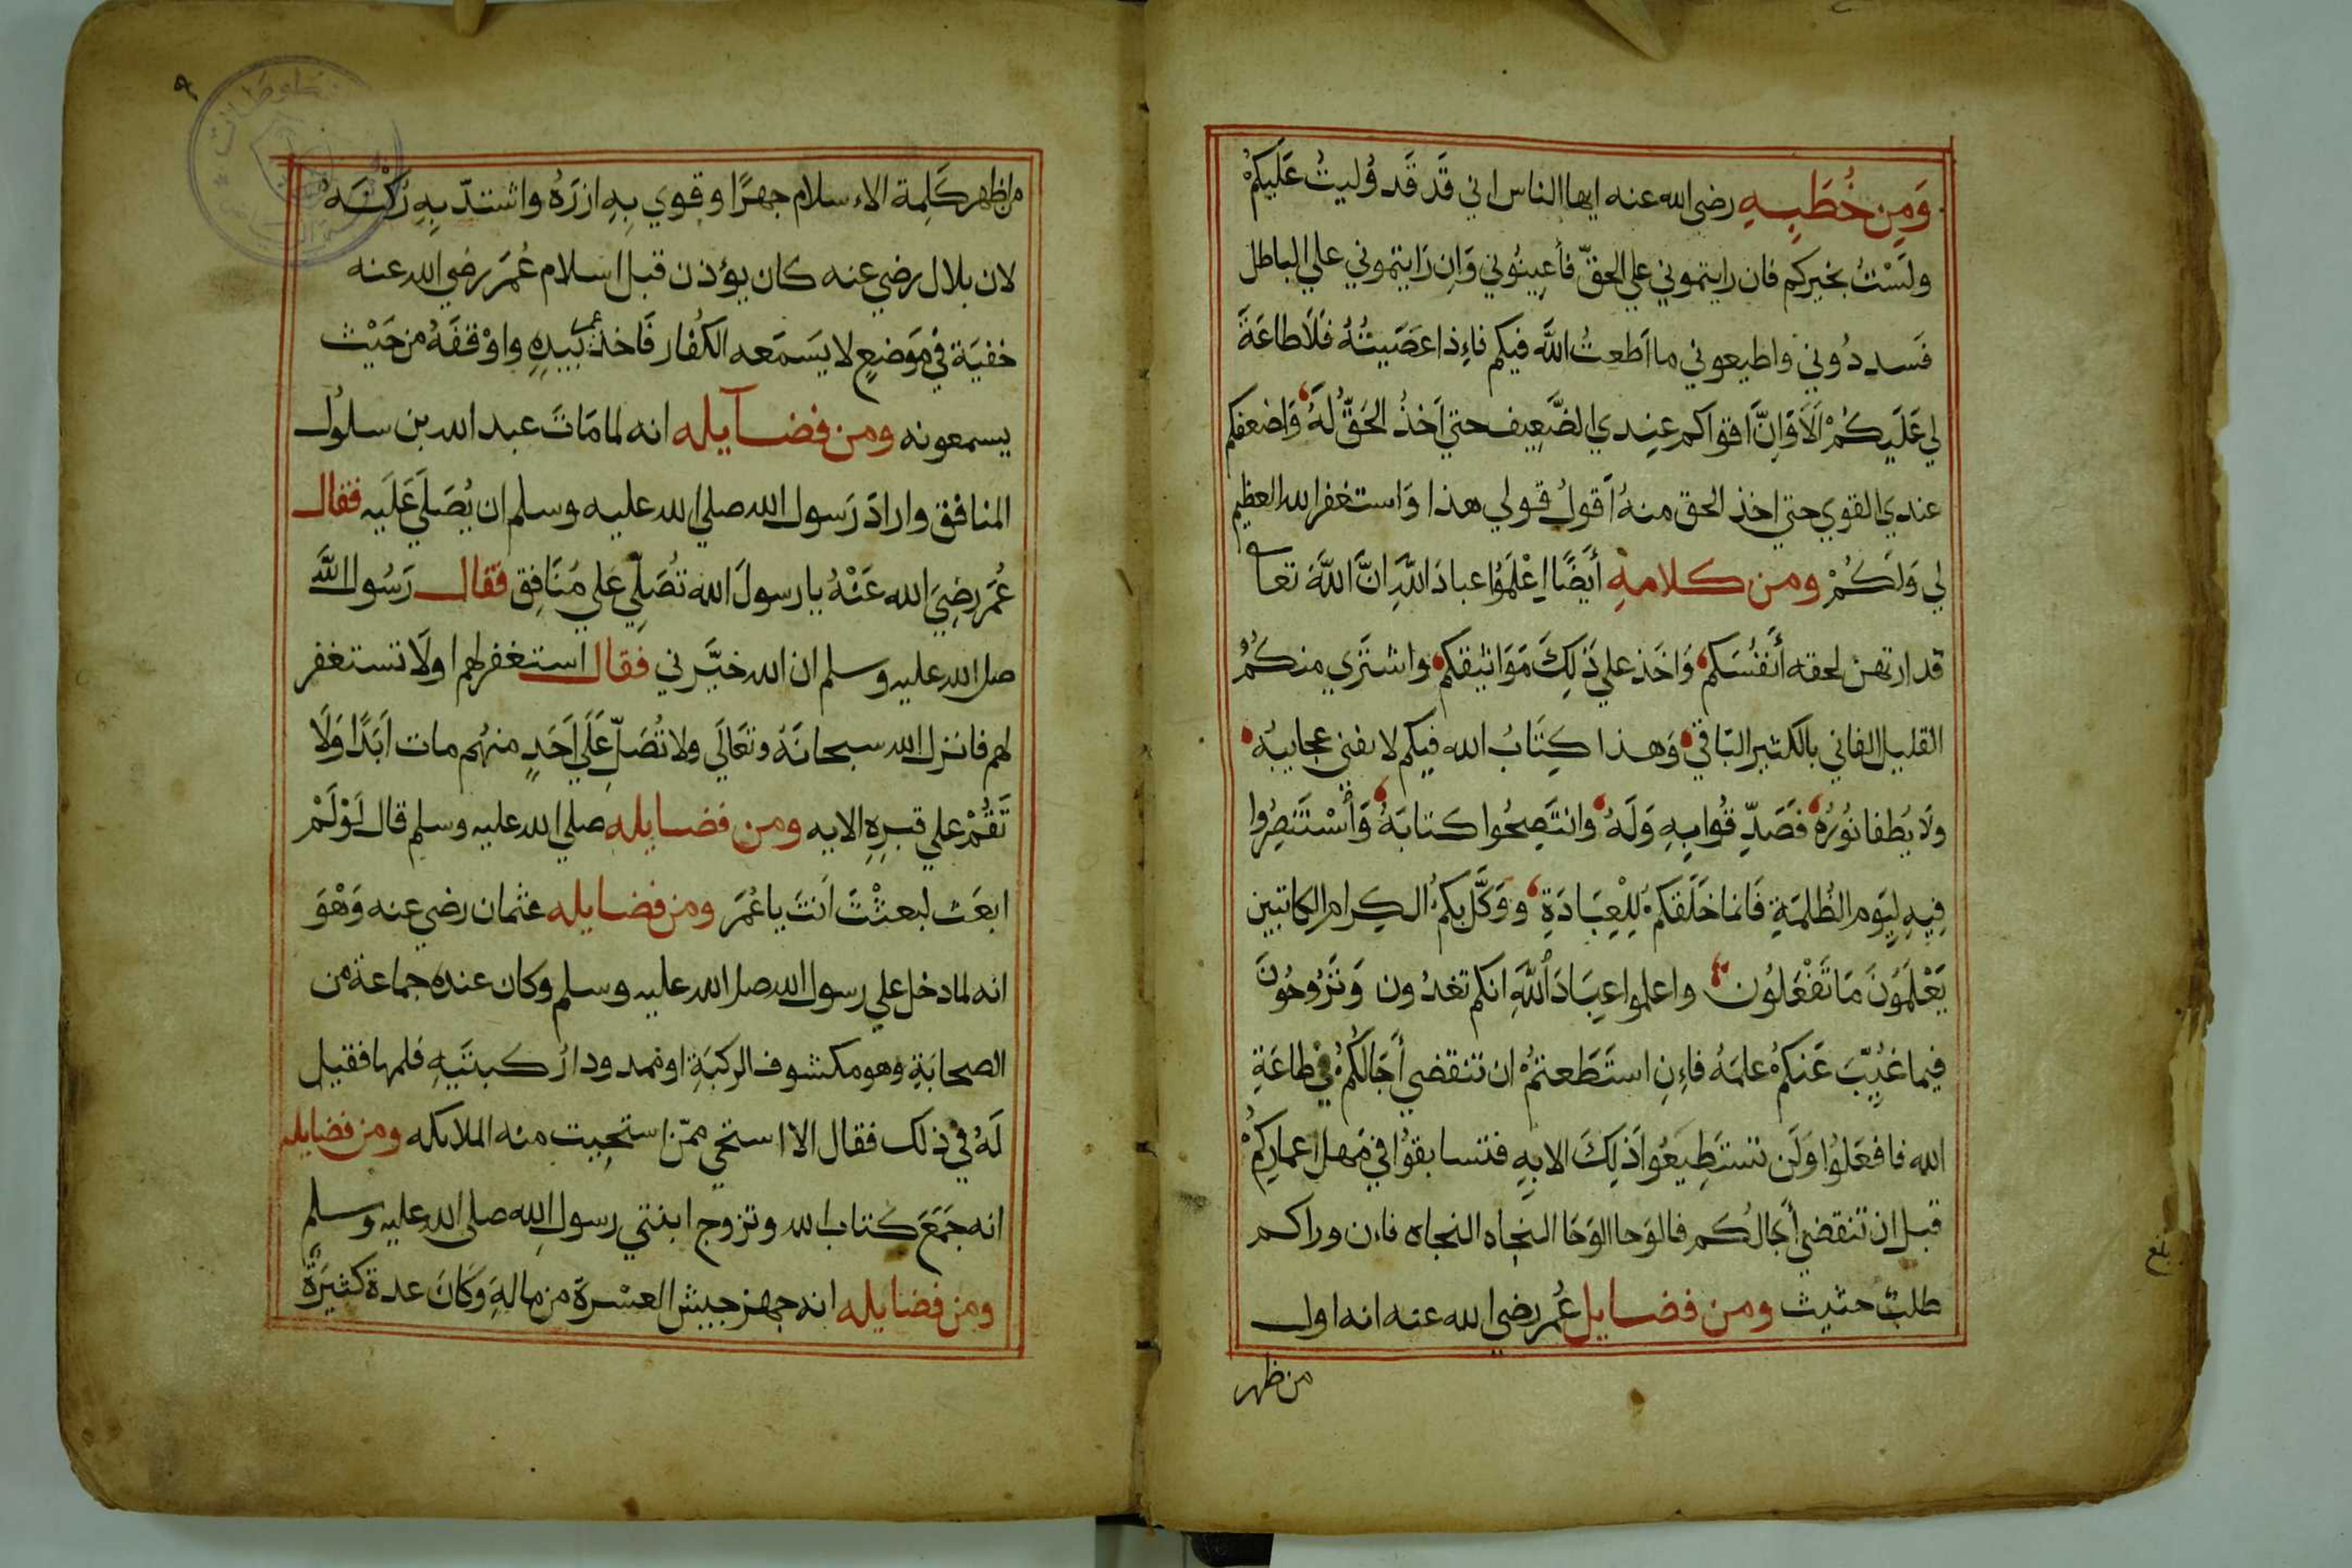 وَمِن خُطَبِهِ رضي الله عنه ايها الناس اني قَد قَد وُليتُ عَلَيكُمْ
ولَسْتُ بخيركم فان رايتموني علي الحقّ فأعِينُوني وَاِن رَايتموني علي الباطل
فَسددُوني واطيعوني ما اَطعتُ اللَّه فيكم فاءِذا عَصَيتُهُ فَلَا طاعَةَ
لي عَلَيكُمْ اَلَا وَاِنَّ اقواكم عِندي الضَّعِيف حتي اَخذُ الحَقّ لَهُ وَاضعفكم
عندي القوي حتي اخذ الحق منهُ اَقولُ قولي هذا وَاستغفر الله العظيم
لي وَلَكُمْ ومن كلامهِ أيضًا اِعْلَمُوا عبادَ اللَّهِ انَّ اللَّهَ تعا
قد ارتهن لحقه أنفُسَكم وَاخَذ علي ذَلِكَ مَوَاثيقكم واشتَري منكُمُ
القليل الفاني بالكثير البَاقي وَهذا كِتَابُ الله فيكم لا يفني عجايبُهُ
ولَا يُطفا نُورُهُ فَصَدِّقُوا بِهِ وَلَهُ وانتَصِحُوا كتابَهُ وَأسْتَنصِرُوا
فِيهِ لِيَوم الظُلمَةِ فَانما خَلَقَكمُ لِلْعِبَادَةِ ووَكَّل بكمُ الكِرام الكاتبين
يَعْلَمُونَ مَا تَفْعَلُون واعلموا عِبَادَ اللَّهِ انكم تغدُون وَتَرُوحُونَ
فيما غُيِّبَ عَنكمُ علمَهُ فاءِنِ استَطَعتمُ ان تنقضي أجَالُكُمُ في طاعَةِ
الله فافعَلُوا وَلَن تستَطِيعُوا ذَلِكَ الا بِهِ فتسابقوُا في مَهل اعمارِكمُ
قبل ان تنقضي أجَالُكُم فالوَحا الوَحَا النجاه النجاه فاءن وراكم
طلبٌ حثيث ومن فضايل عُمر رضي الله عنه انه اول
من ظهر
بلغ
من اظهر كَلِمة الاءسلام جهرًا وقوي بِهِ ازرَهُ واشتدّ بِهِ رُكْنَهُ
لان بلال رضي عنه كان يؤذن قبل اسلام عُمَر رضي الله عنه
خفيَة في مَوَضعٍ لا يَسَمَعه الكُفار فَاخذ بيدِهِ واوْقفَهُ من حَيْث
يسمعونه ومن فضايله انه لما مَاتَ عبد الله بن سلوُل
المنافق وارادَ رَسول الله صلي الله عليه وسلم ان يُصَلي عَلَيه فقال
عُمَر رضِيَ الله عَنْهُ يا رسولَ الله تُصَلِّي عَلي مُنَافِق فَقال رَسُول اللَّه
صل الله عليه وسلم ان الله خيَّرني فقال استغفر لهم اولَا تستغفر
لهم فانزل الله سبحانَهُ وتعَالَي ولا تُصَلِّ عَلَي اَحَدٍ منهُم مات اَبَدًا وَلَا
تَقُمْ علي قبرِهِ الايه ومن فضايله صلي الله عليه وسلم قال لَوْ لَمْ
ابعَث لبعثْتَ اَنتَ يا عُمَر ومن فضايله عثمان رضي عنه وَهْوَ
انه لما دخل علي رسول الله صل الله عليه وسلم وكان عنده جماعة من
الصحابَةِ وهو مكشوف الركبَةِ او ممدودا رُكبتَيهِ فلمها فقيل
لَهُ في ذلك فقال الا استحي ممّن استحيت منه الملايكه ومن فضايله
انه جَمَعَ كتاب الله وتزوج ابنتي رسول الله صلي الله عليه وسلم
ومن فضايله انه جهز جيش العسْرة من مالهِ وَكَانَ عدة كثيرَةٌ